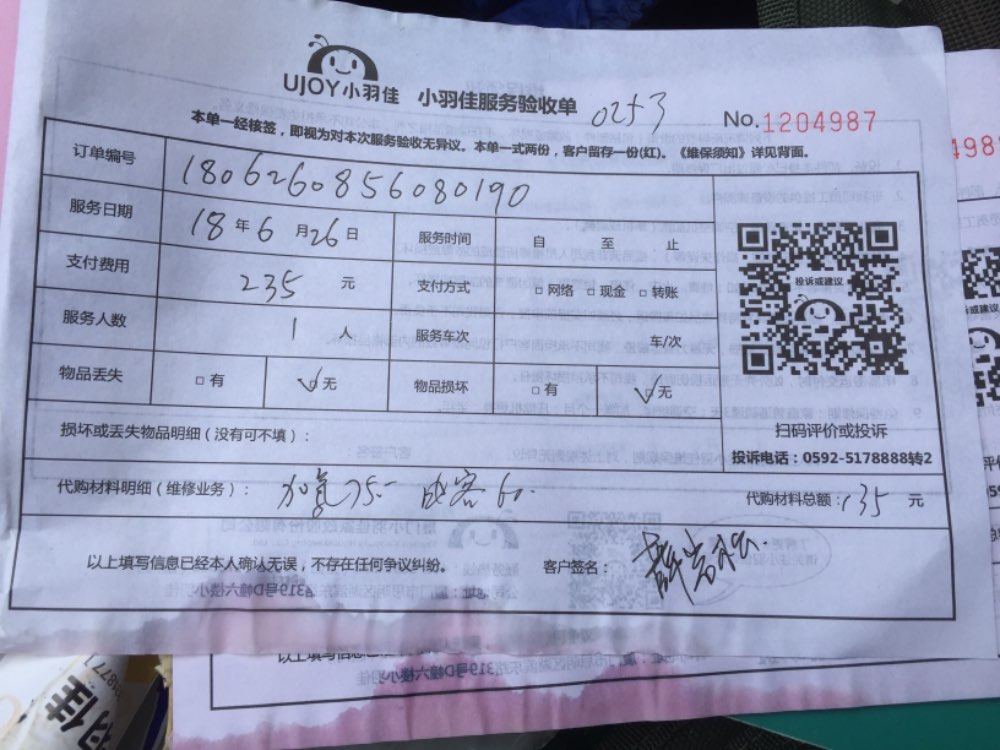 UJOY小羽佳 小羽佳服务验收单 0253
No.1204987
本单一经核签，即视为对本次服务验收无异议。本单一式两份，客户留存一份(红)。《维保须知》详见背面。
订单编号 1806260856080190
服务日期 18 年 6 月 26 日 服务时间 自 至 止
支付费用 235 元 支付方式 □网络 □现金 □转账
服务人数 1 人 服务车次 车/次
物品丢失 □有 ☑无 物品损坏 □有 ☑无
投诉或建议
扫码评价或投诉
损坏或丢失物品明细（没有可不填）：
投诉电话：0592-5178888转2
代购材料明细（维修业务）： 加氢75 60. 代购材料总额：135 元
以上填写信息已经本人确认无误，不存在任何争议纠纷。 客户签名：